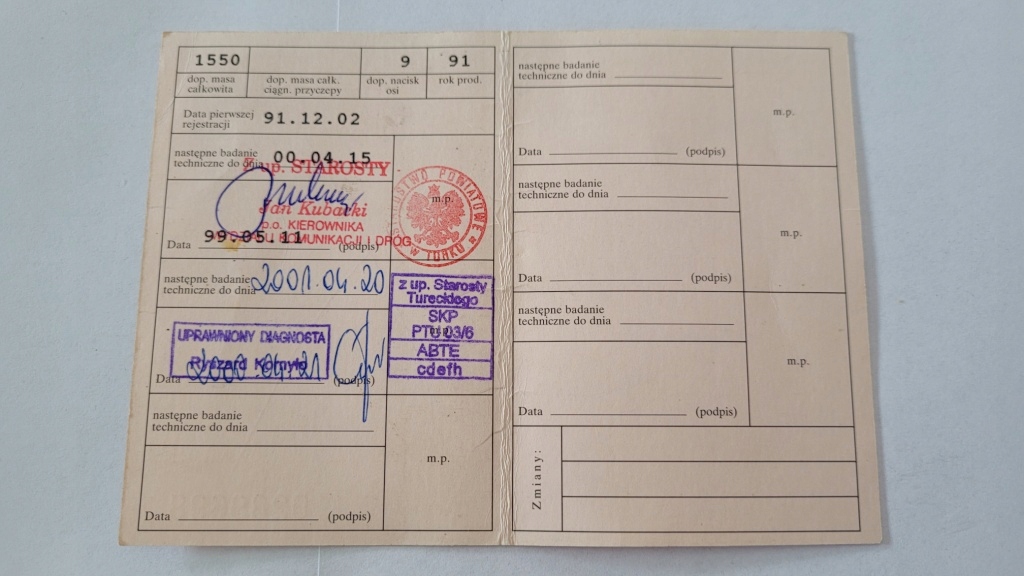 1550 9 91
dop. masa całkowita dop. masa całk. ciągn. przyczepy dop. nacisk osi rok prod.
Data pierwszej rejestracji 91.12.02
następne badanie techniczne do dnia 00.04.15
z up. STAROSTY
Jan Kubacki
p.o. KIEROWNIKA
KOMUNIKACJI I DRÓG
Data 99.05.11 (podpis)
m.p.
POWIATOWE
w TURKU
następne badanie
techniczne do dnia 2001.04.20
UPRAWNIONY DIAGNOSTA
Ryszard
Data 2000 04.21 (podpis)
z up. Starosty
Tureckiego
SKP
PTU 03/6
ABTE
cdefh
następne badanie
techniczne do dnia
m.p.
Data (podpis)
następne badanie
techniczne do dnia
m.p.
Data (podpis)
następne badanie
techniczne do dnia
m.p.
Data (podpis)
następne badanie
techniczne do dnia
m.p.
Data (podpis)
Zmiany: